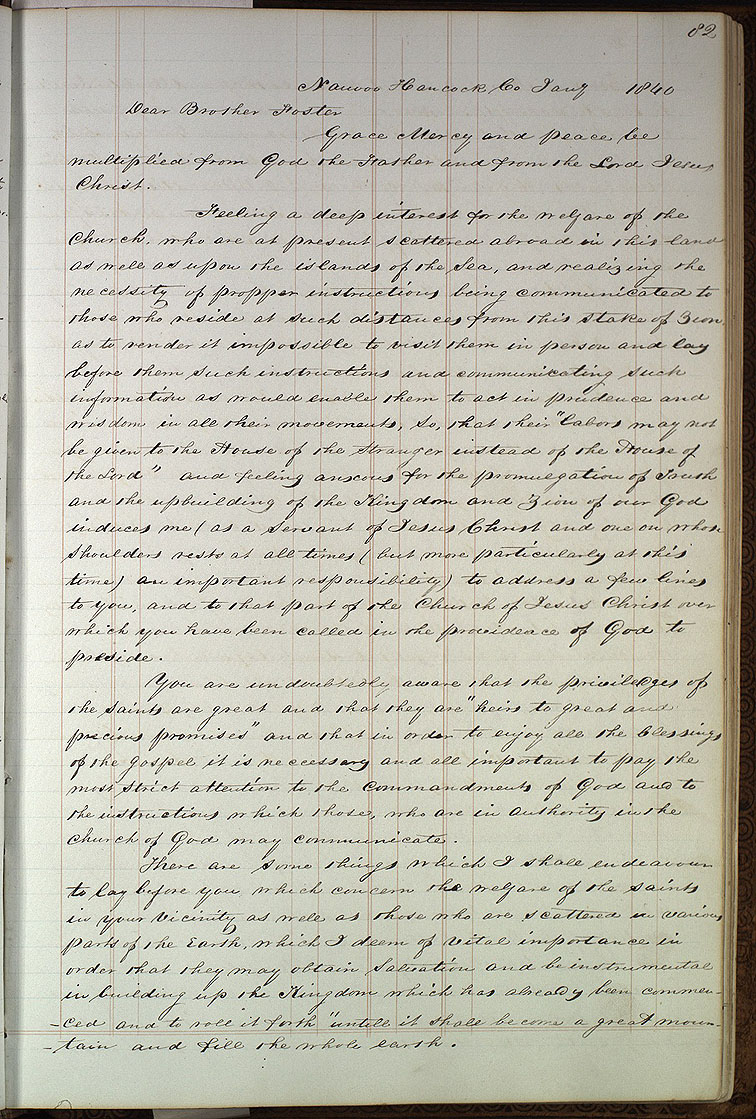 82
Nauvoo Hancock Co Jany 1840
Dear Brother Foster
Grace Mercy and peace be
multiplied from God the Father and from the Lord Jesus
Christ.
Feeling a deep interest for the welfare of the
Church, who are at present scattered abroad in this land
as well as upon the islands of the Sea, and realizing the
necessity of propper instructions being communicated to
those who reside at such distances from this Stake of Zion
as to render it impossible to visit them in person and lay
before them such instructions and communicating such
information as would enable them to act in prudence and
wisdom in all their movements, So, that their "labors may not
be given to the House of the Stranger instead of the House of
the Lord" and feeling anxcous for the promulgation of Truth
and the upbuilding of the Kingdom and Zion of our God
induces me (as a Servant of Jesus Christ and one on whose
Shoulders rests at all times (but more particularly at this
time) an important responsibility) to address a few lines
to you, and to that part of the Church of Jesus Christ over
which you have been called in the providence of God to
preside.
You are undoubtedly aware that the priviledges of
the Saints are great and that they are "heirs to great and
precious promises" and that in order to enjoy all the blessings
of the gospel it is neccessary and all important to pay the
most strict attention to the commandments of God and to
the instructions which those, who are in authority in the
Church of God may communicate.
There are some things which I shall endeavour
to lay before you which concern the welfare of the Saints
in your vicinity as well as those who are scattered in various
parts of the Earth, which I deem of vital importance in
order that they may obtain Salvation and be instrumental
in building up the Kingdom which has already been commen-
-ced and to roll it forth "untill it shall become a great moun-
-tain and fill the whole earth.